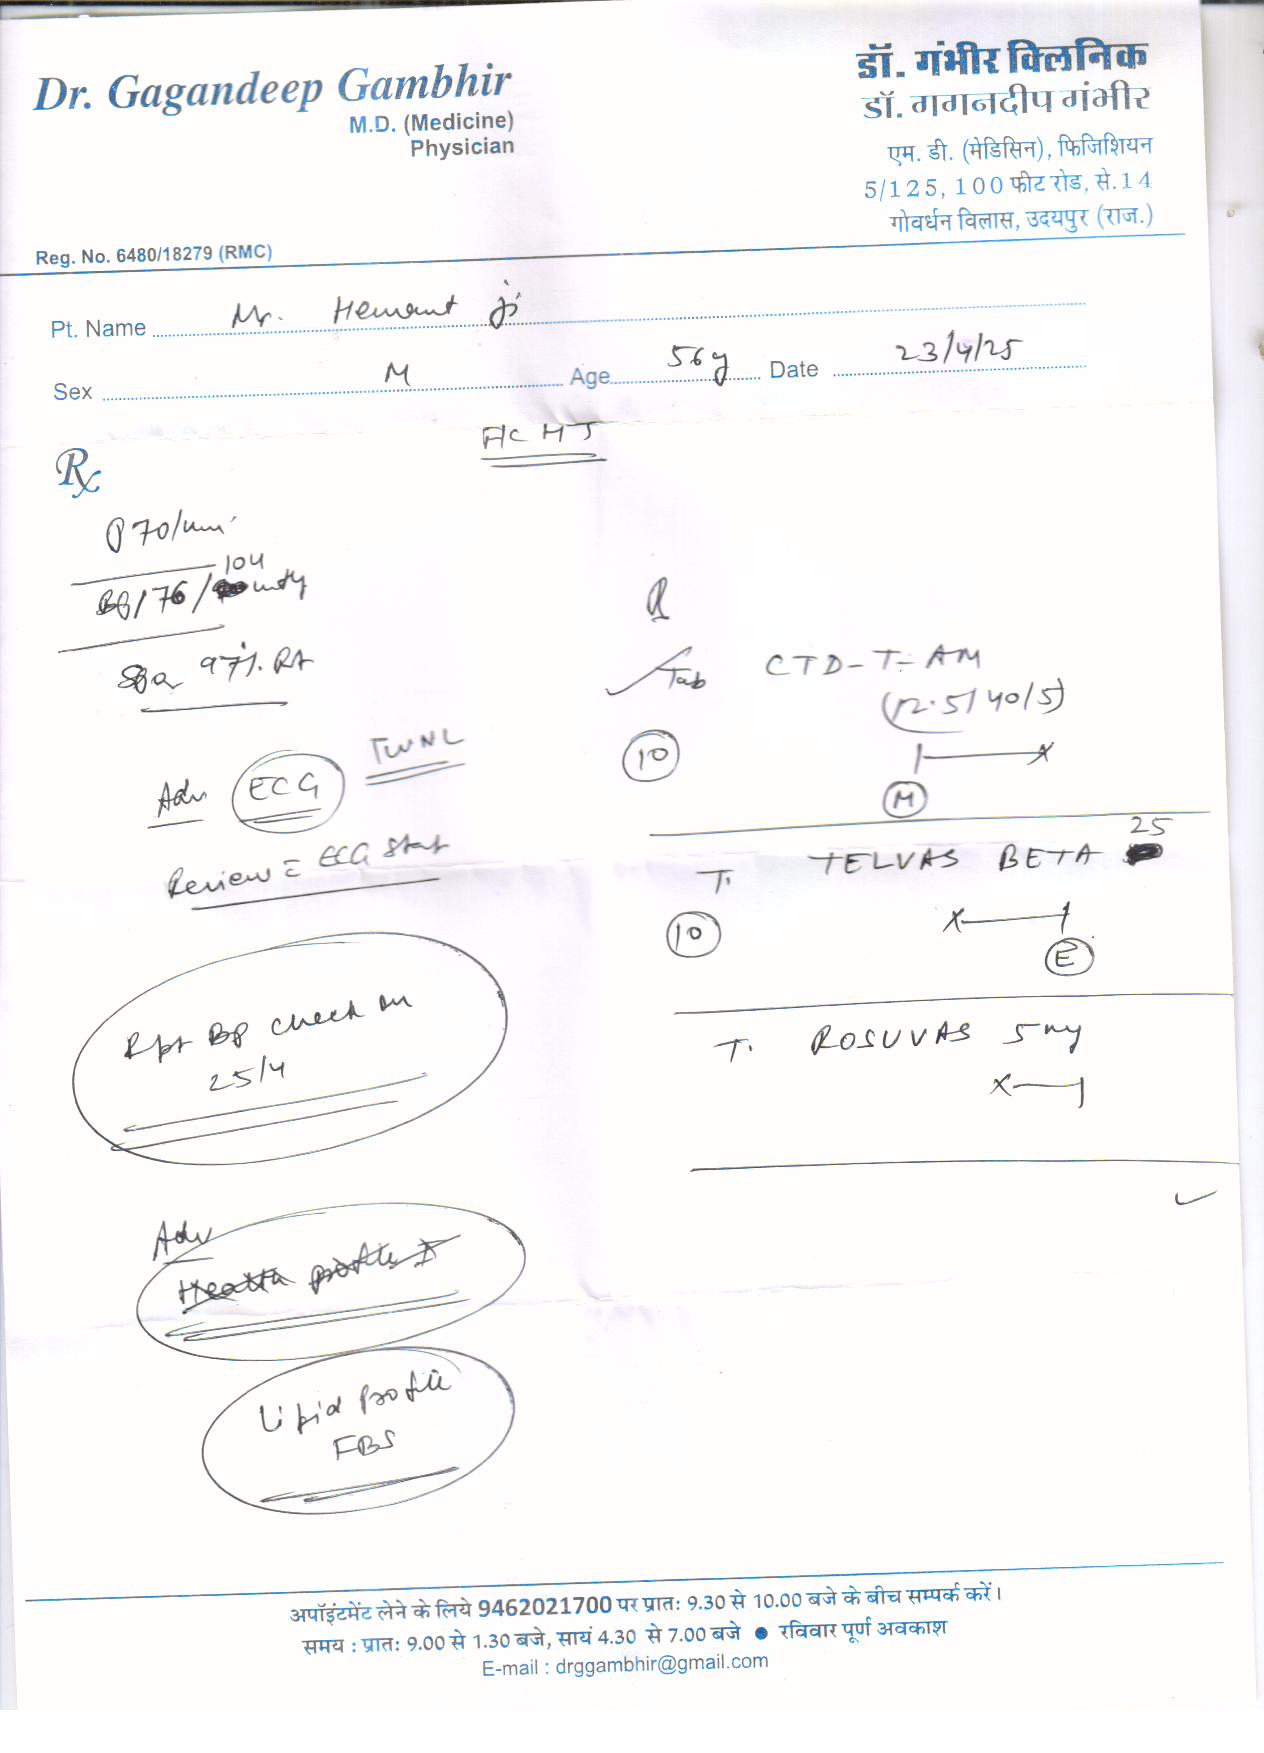 Dr. Gagandeep Gambhir
M.D. (Medicine)
Physician
Reg. No. 6480/18279 (RMC)
डॉ. गंभीर क्लिनिक
डॉ. गगनदीप गंभीर
एम. डी. (मेडिसिन), फिजिशियन
5/125, 100 फीट रोड, से.14
गोवर्धन विलास, उदयपुर (राज.)
Pt. Name Mr. Hemant ji
Sex M Age 56y Date 23/4/25
Rx
P 70/min
104
/76/
97%. RA
Adv ECG
Review ECG Stat
Rpt BP check on
25/4
Adv
Health profile I
Lipid profile
FBS
Tab CTD-T-AM
(12.5/40/5)
10
M
T. TELVAS BETA 25
10
E
T. ROSUVAS 5mg
अपॉइंटमेंट लेने के लिये 9462021700 पर प्रातः 9.30 से 10.00 बजे के बीच सम्पर्क करें।
समय : प्रातः 9.00 से 1.30 बजे, सायं 4.30 से 7.00 बजे ● रविवार पूर्ण अवकाश
E-mail : drggambhir@gmail.com